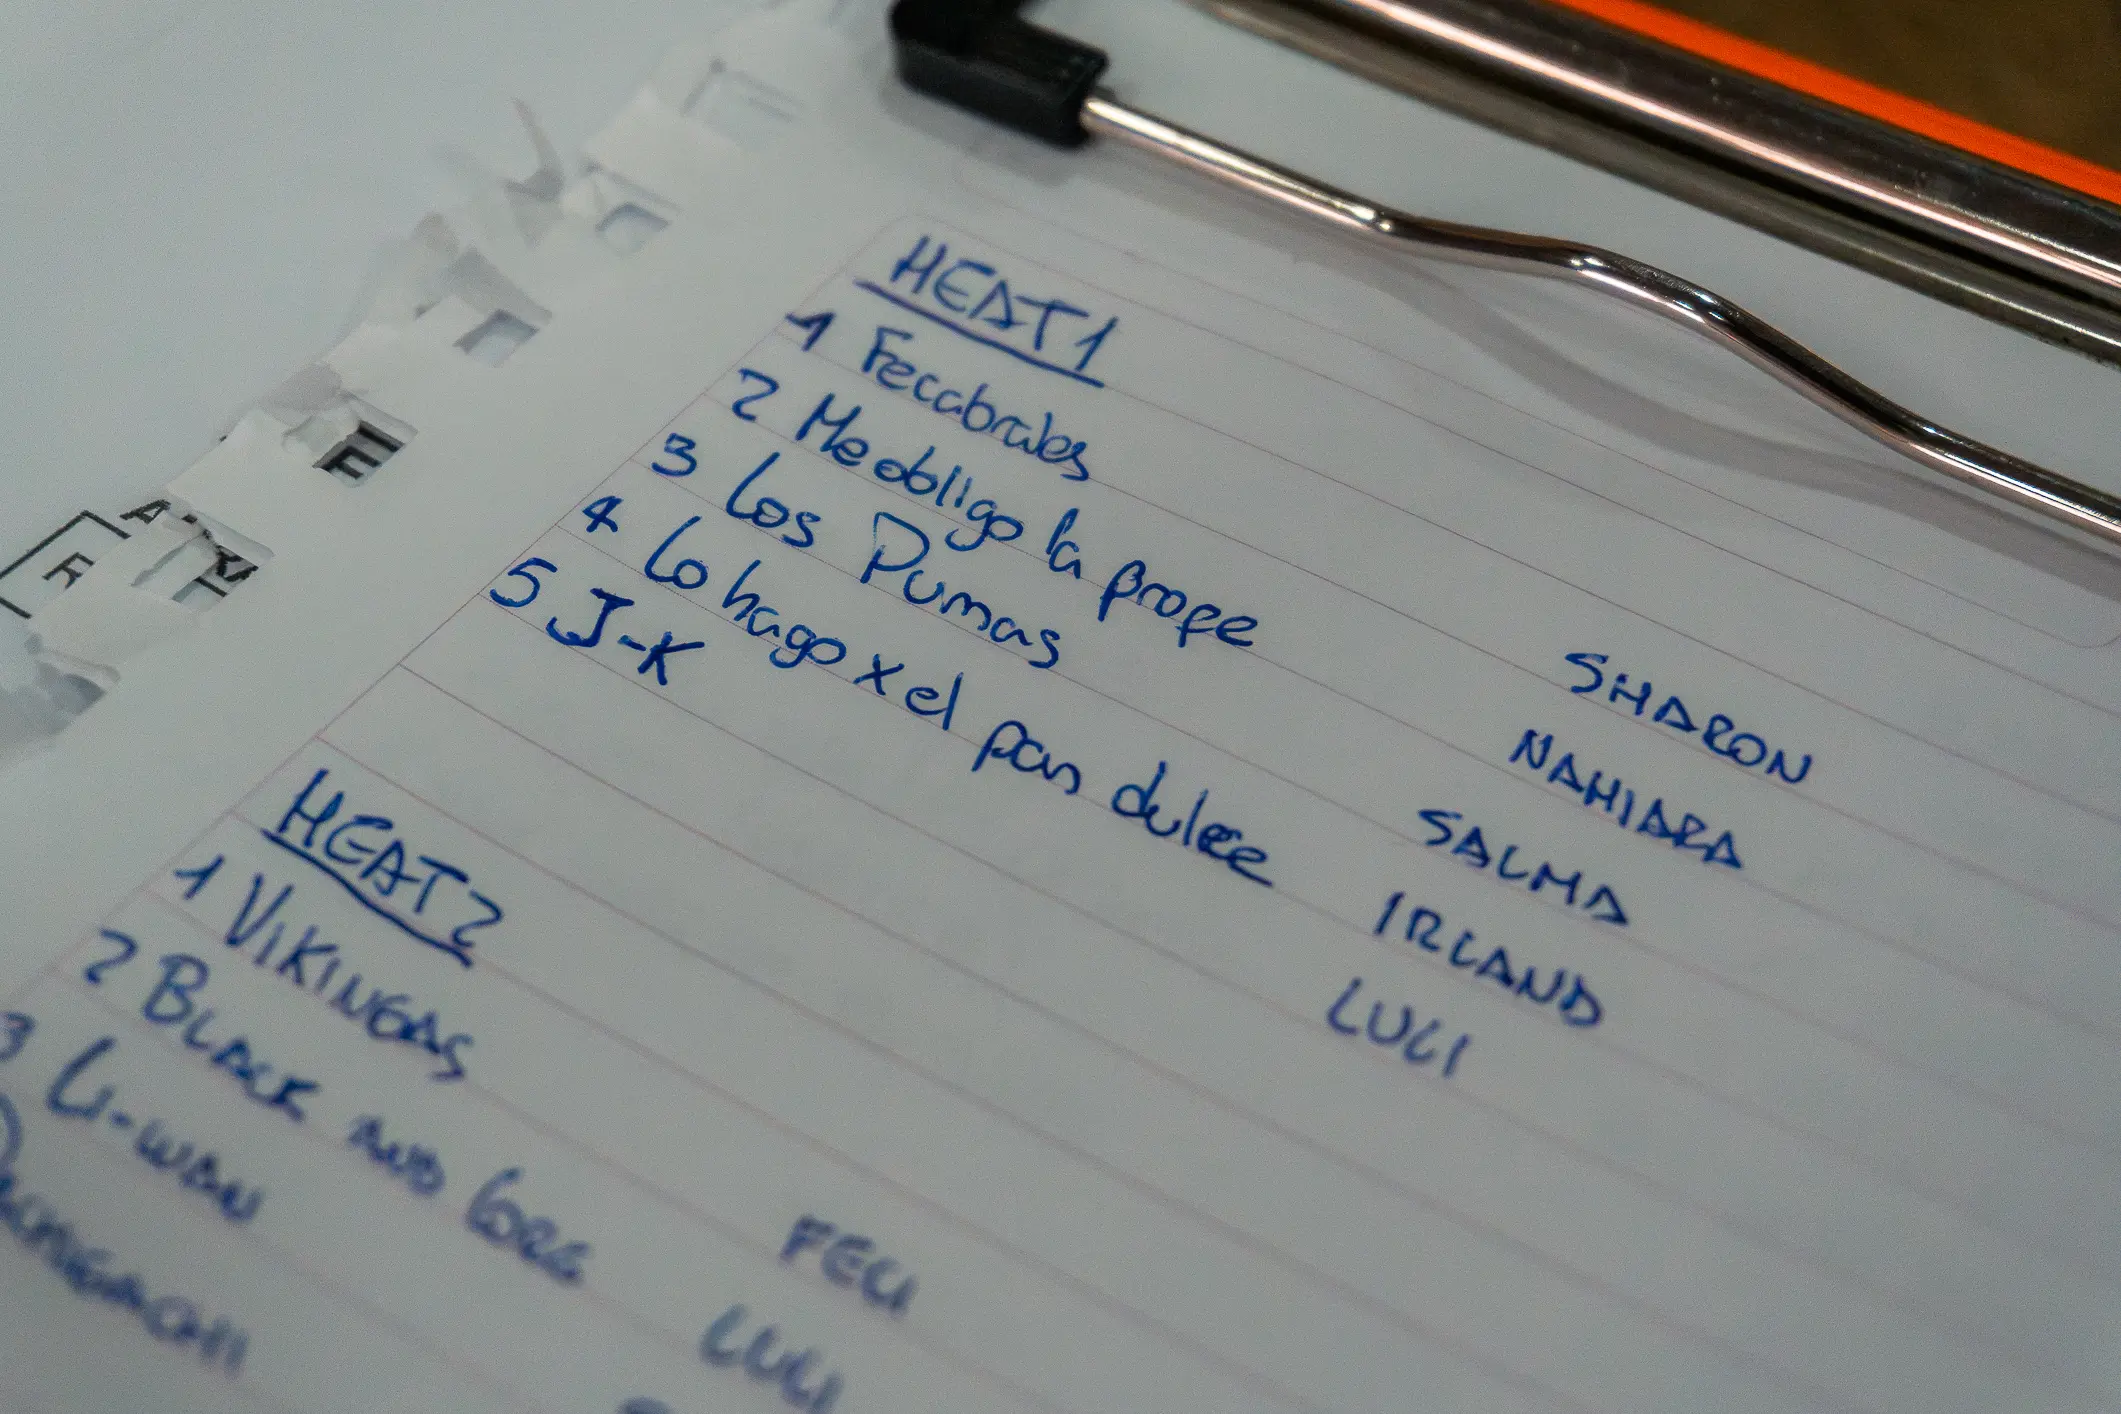 HEAT 1
1 Fecabrales SHARON
2 Me obligo la profe NAHIARA
3 Los Pumas SALMA
4 Lo hago x el pan dulce IRLAND
5 J-K LULI
HEAT 2
1 VIKINGAS FELI
2 BLACK AND LULI
3 LI-WAN